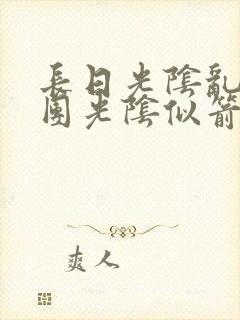 長日光陰亂
園光陰似箭
爽人